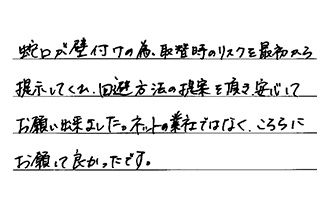 蛇口が壁付けの為、取替時のリスクを最初から
提示してくれ、回避方法の提案を頂き、安心して
お願い出来ました。ネットの業社ではなく、こちらに
お願いして良かったです。